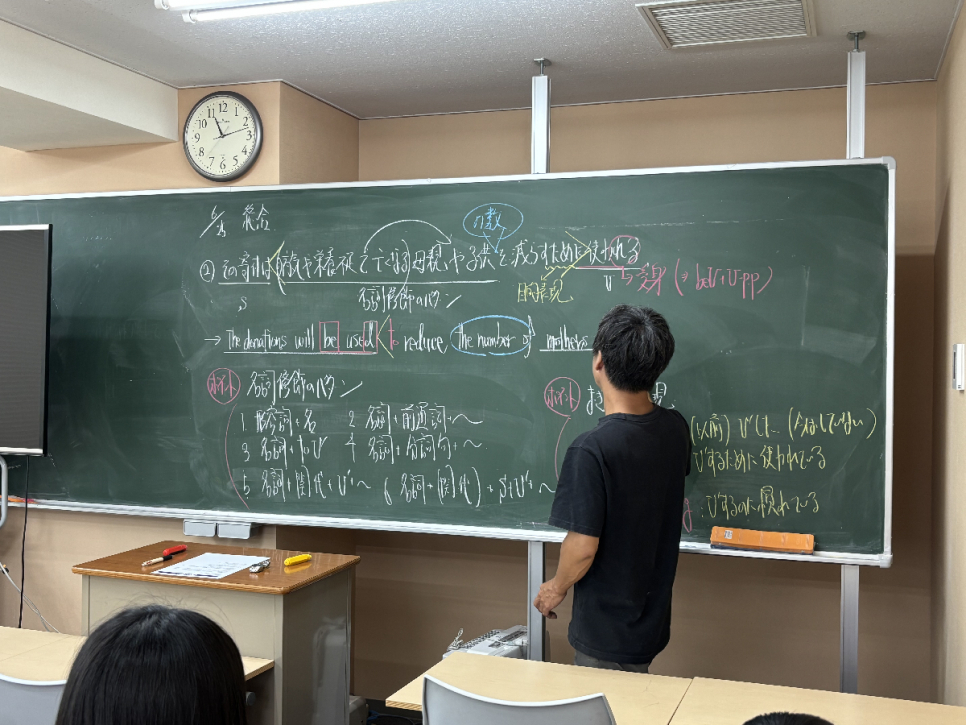 総合
の数
② その寄付は 飢餓や栄養不足で亡くなる母親や子供を減らすために使われる
S 名詞修飾のパターン 目的表現 V 受身 (→ be동+Vpp)
→ The donations will be used to reduce the number of mothers
ポイント 名詞修飾のパターン
ポイント
1 形容詞+名 2 名詞+前置詞+〜
3 名詞+to V 4 名詞+分詞句+〜
5 名詞+関代+V+〜 6 名詞+(関代)+S+V+〜
(以前) Vした… (今はしていない)
Vするために使われている
: Vするのに慣れている